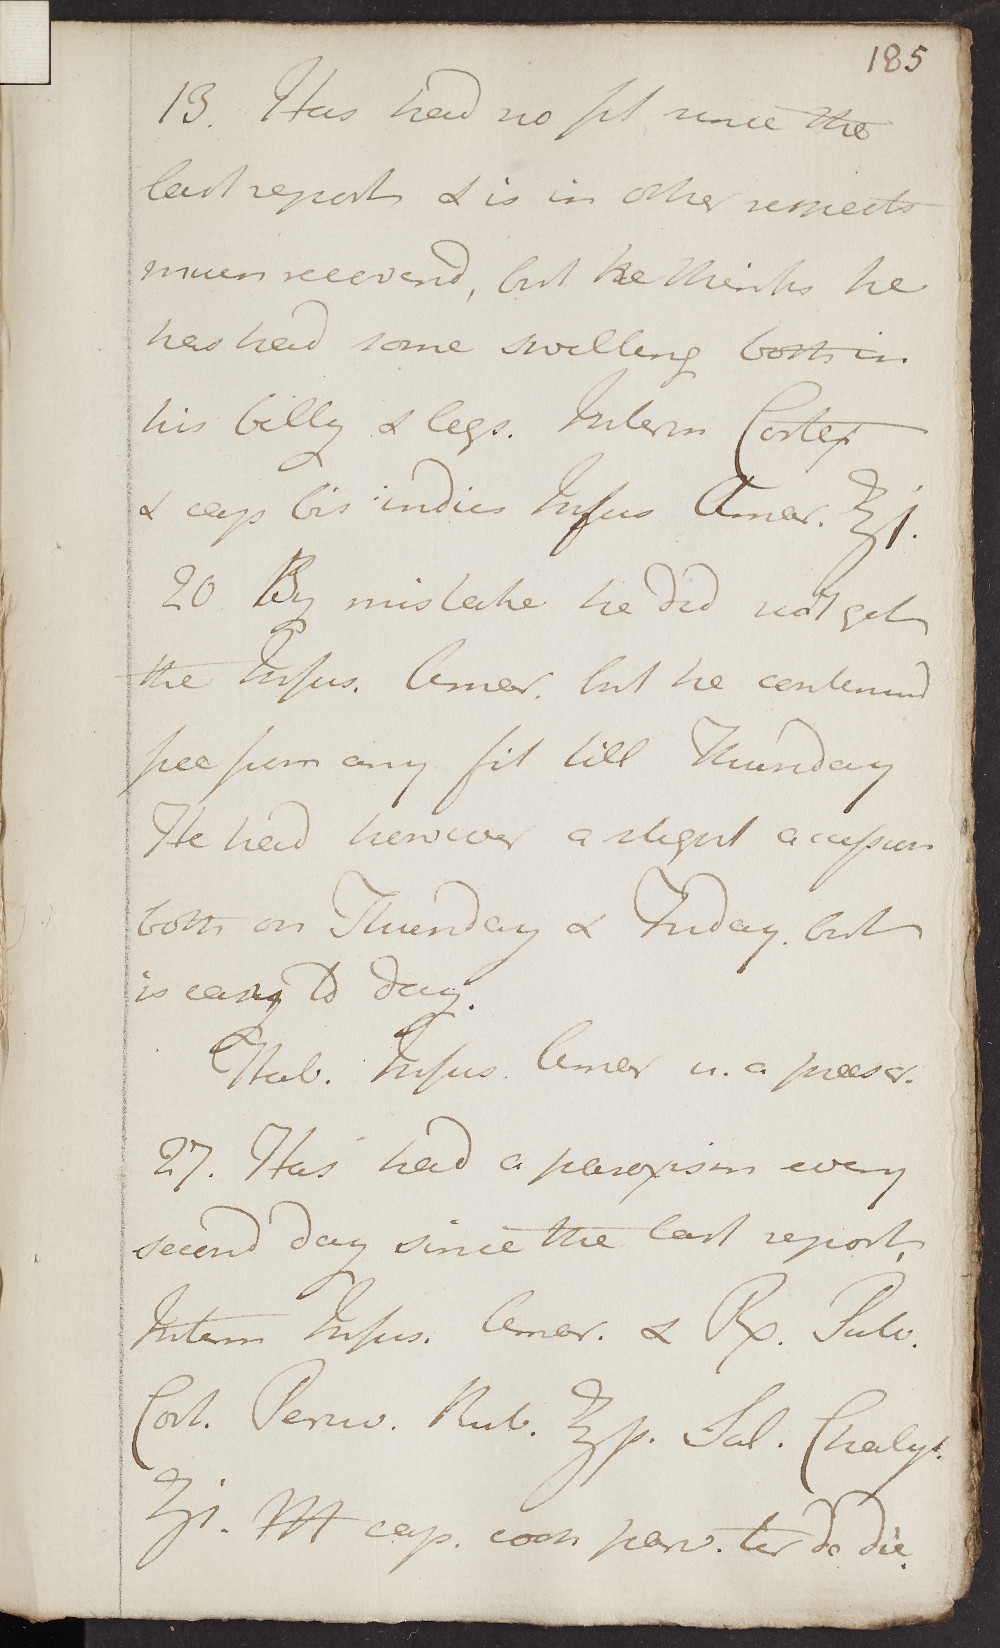 185
13. Has had no fit since the
last report & is in other respects
much recovered, but he thinks he
has had some swelling both in
his belly & legs. Interm Cortex
& cap bis indies Infus Amar. ℥j.
20 By mistake he did not get
the Infus. Amar. but he continued
free from any fit till Thursday
He had however a slight accession
both on Thursday & Friday. but
is easy to day.
Hab. Infus. Amar u. a prescr.
27. Has had a paroxism every
second day since the last report.
Interm Infus. Amar. & Rx. Pulv.
Cort. Peruv. Rub. ℥p. Sal. Chalyb.
ʒj. M cap. coch parv. ter de die.